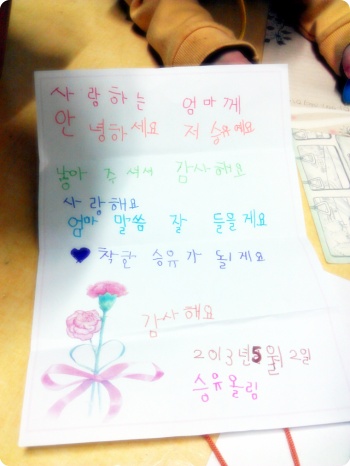 사랑하는 엄마께
안녕하세요 저 승유예요
낳아 주셔서 감사해요
사랑해요
엄마 말씀 잘 들을게요
♥ 착한 승유가 될게요
감사해요
2013년 5월 2일
승유올림